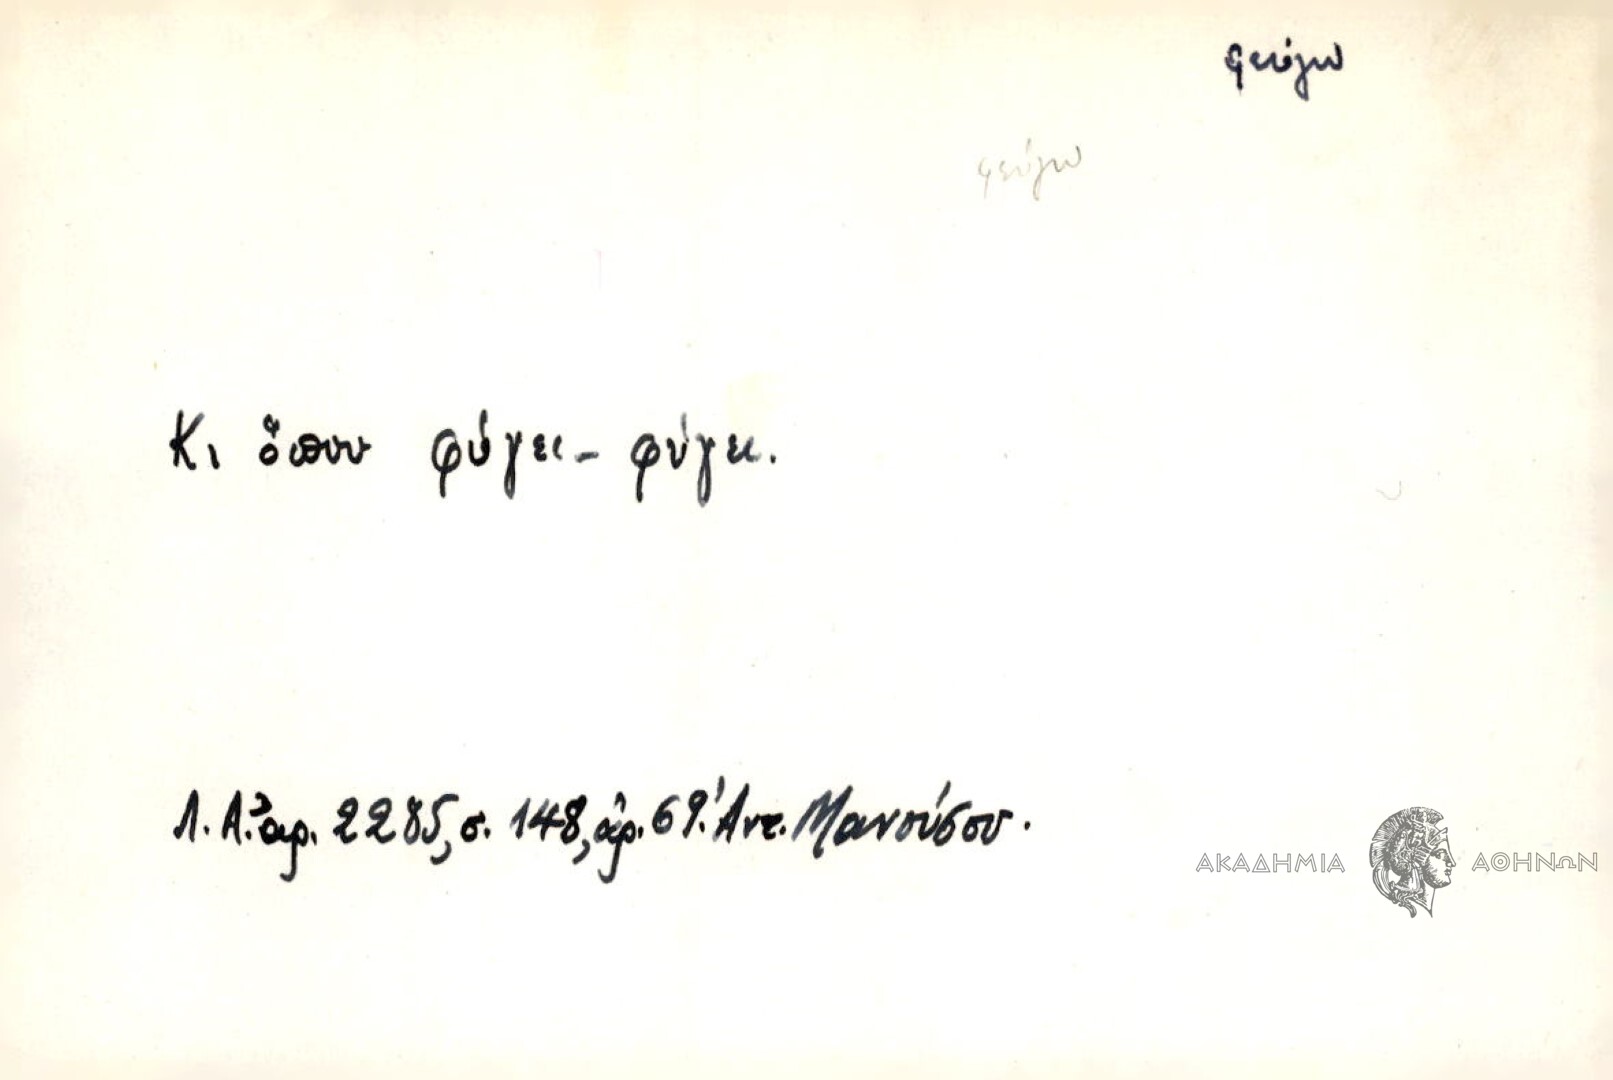 φεύγω
φεύγω
Κι ὅπου φύγει - φύγει.
Λ. Α. ἀρ. 2285, σ. 148, ἀρ. 69. Ἀντ. Μανούσου.
ΑΚΑΔΗΜΙΑ ΑΘΗΝΩΝ